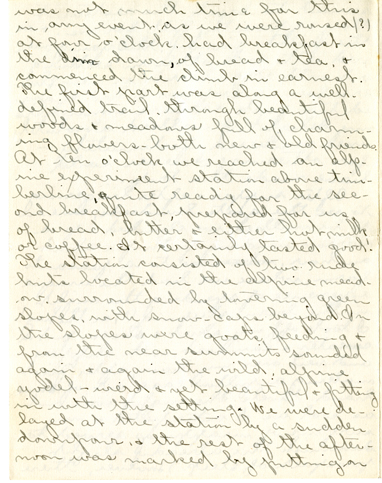 was not much time for this
in any event, as we were roused (?)
at four o'clock, had breakfast in
the dim dawn, of bread & tea, &
commenced the climb in earnest.
The first part was along a well-
defined trail, through beautiful
woods & meadows full of charm-
ing flowers - both new & old friends.
At ten o'clock we reached an alp-
ine experiment station above tim-
berline, quite ready for the sec-
ond breakfast, prepared for us,
of bread, butter & either hot milk
or coffee. It certainly tasted good!
The station consisted of two rude
huts located in the alpine mead-
ow, surrounded by towering green
slopes, with snow-caps beyond. On
the slopes were goats, feeding &
from the near summits sounded
again & again the wild, alpine
yodel - weird & yet beautiful & fitting
in with the setting. We were de-
layed at the station by a sudden
downpour, & the rest of the after-
noon was marked by putting on